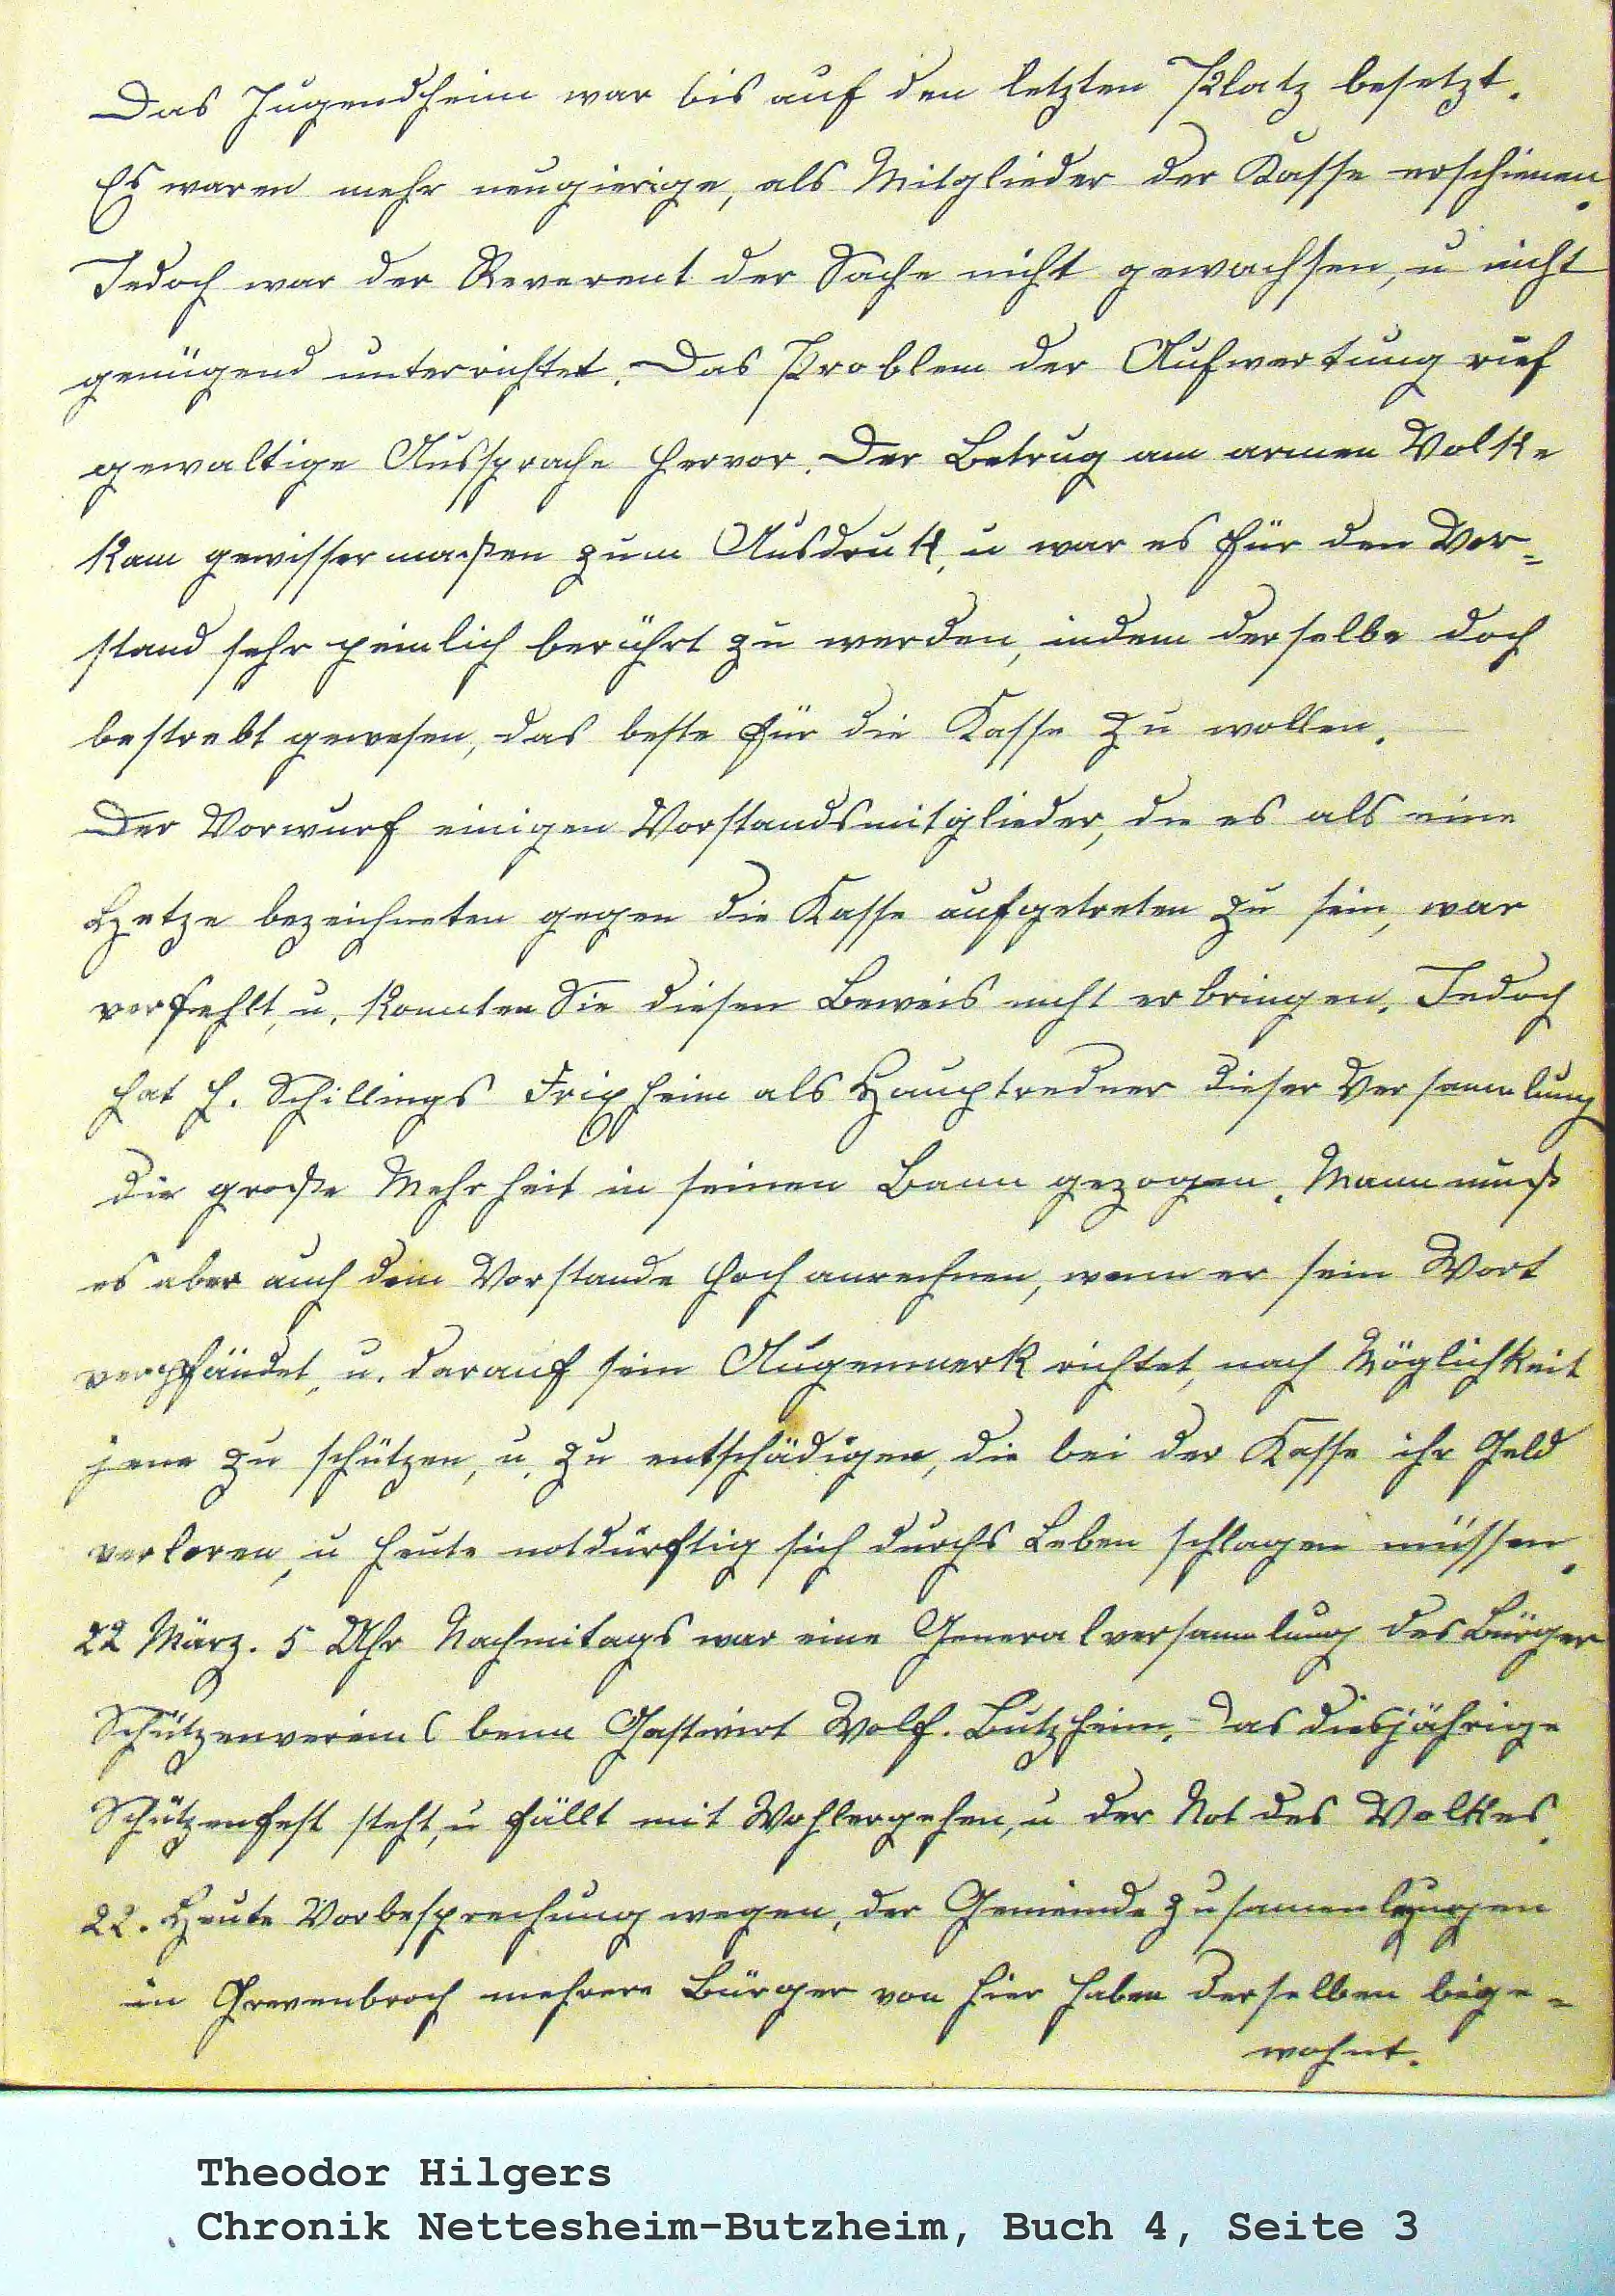 Das Jugendheim war bis auf den letzten Platz besetzt.
Es waren mehr neugierige, als Mitglieder der Kasse erschienen.
Jedoch war der Reverent der Sache nicht gewachsen, u nicht
genügend unterrichtet. Das Problem der Aufwertung rief
gewaltige Aussprache hervor. Der Betrug am armen Volke
kam gewissermaßen zum Ausdruk, u war es für den Vor=
stand sehr peinlich berührt zu werden, indem derselbe doch
bestrebt gewesen, das beste für die Kasse zu wollen.
Der Vorwurf einigen Vorstandsmitglieder, die es als eine
Hetze bezeichneten gegen die Kasse aufgetreten zu sein, war
verfehlt, u. konnten Sie diesen Beweis nicht erbringen. Jedoch
hat H. Schillings Frixheim als Hauptredner dieser Versammlung
die große Mehrheit in seinen Bann gezogen. Mann muß
es aber auch dem Vorstande hoch anrechnen, wenn er sein Wort
verpfändet, u. darauf sein Augenmerk richtet, nach Möglichkeit
jene zu schützen, u. zu entschädigen, die bei der Kasse ihr Geld
verloren, u heute notdürftig sich durchs Leben schlagen müssen.
22 März. 5 Uhr Nachmitags war eine Generalversammlung des Bürger
Schützenvereins beim Gastwirt Wolf. Butzheim. Das diesjährige
Schützenfest steht, u fällt mit Wohlergehen, u der Not des Volkes.
22. Heute Vorbesprechung wegen, der Gemeinde
in Grevenbroch mehrere Bürger von hier haben derselben beige=
wohnt.
Theodor Hilgers
Chronik Nettesheim-Butzheim, Buch 4, Seite 3